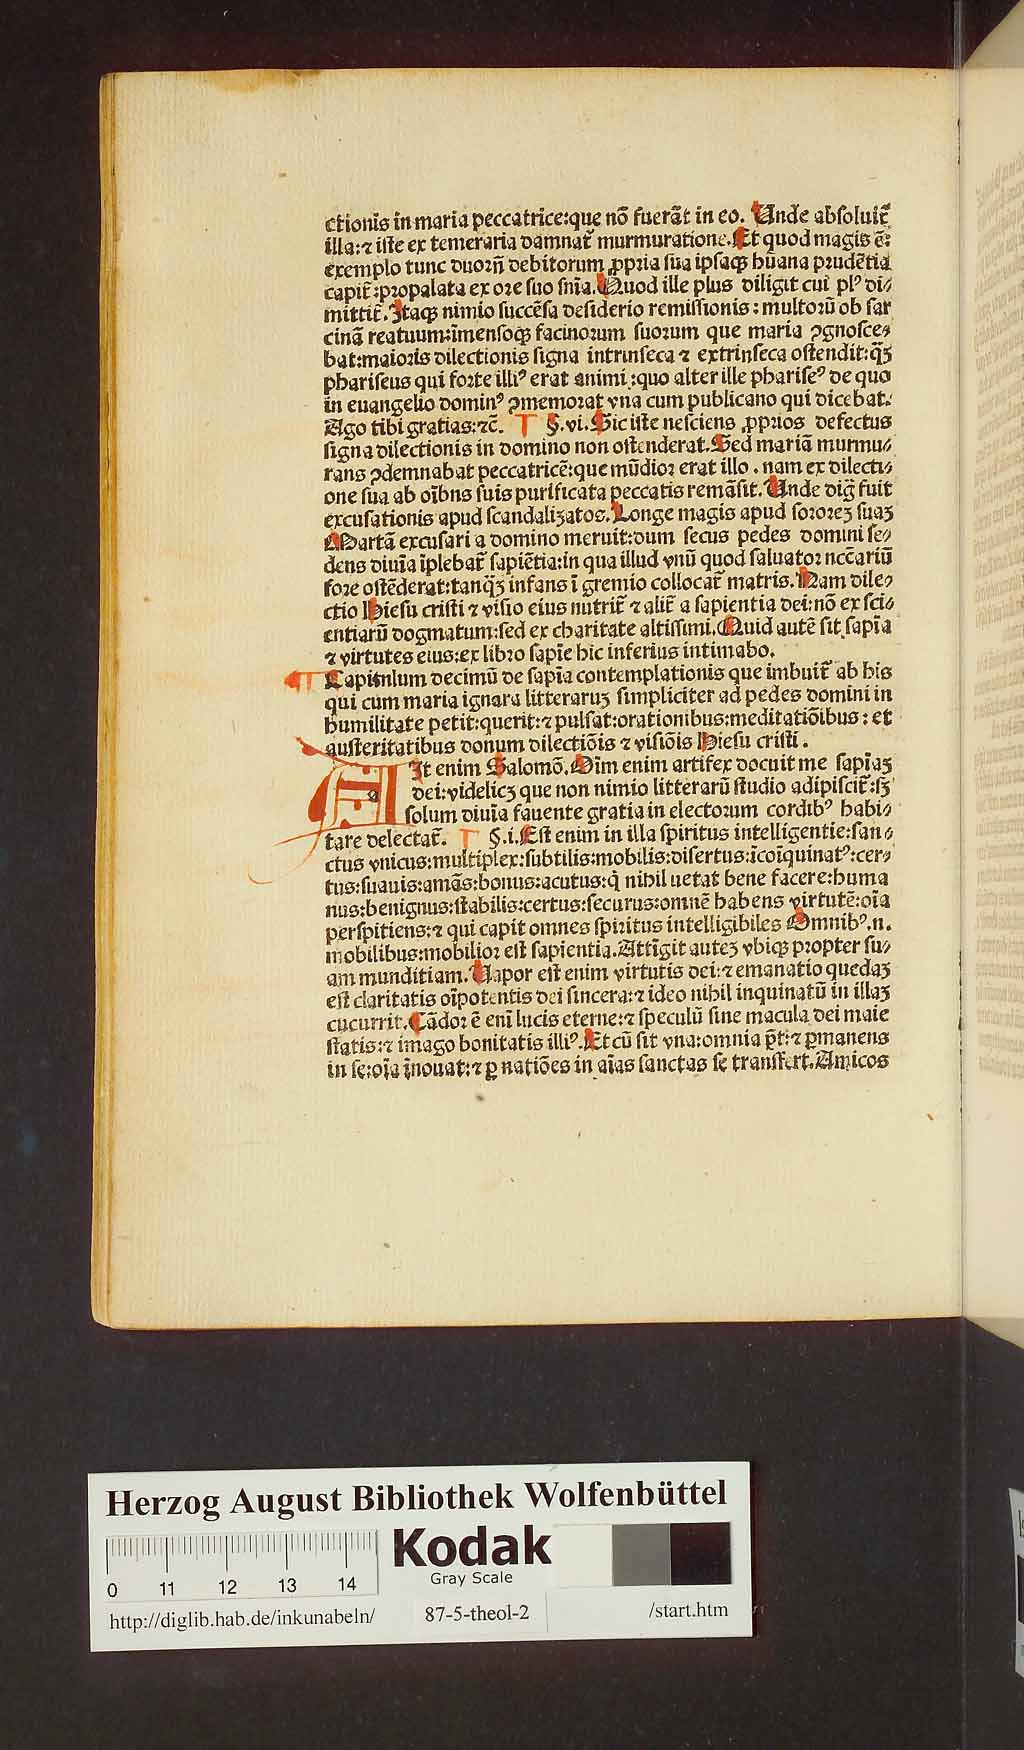 ctionis in maria peccatrice:que nō fuerāt in eo. Unde absoluit᷑
illa:⁊ iste ex temeraria damnat᷑ murmuratione. Et quod magis ē:
exemplo tunc duorū debitorum ꝓpria sua ipsaqꝫ huāna prudētia
capit᷑:propalata ex ore suo snīa. Quod ille plus diligit cui plꝰ di⸗
mittit᷑. Itaqꝫ nimio succēsa desiderio remissionis: multorū ob sar
cinā reatuum:īmensoqꝫ facinorum suorum que maria ꝯgnosce⸗
bat:maioris dilectionis signa intrinseca ⁊ extrinseca ostendit:q̄ꝫ
phariseus qui forte illiꝰ erat animi:quo alter ille phariseꝰ de quo
in euangelio dominꝰ ꝯmemorat vna cum publicano qui dicebat.
Ago tibi gratias:⁊c̄. §.vi. Sic iste nesciens ꝓprios defectus
signa dilectionis in domino non ostenderat. Sed mariā murmu⸗
rans ꝯdemnabat peccatricē:que mūdior erat illo. nam ex dilecti⸗
one sua ab oībns suis purificata peccatis remāsit. Unde dig̃ fuit
excusationis apud scandalizatos. Longe magis apud sororeꝫ suaꝫ
Martā excusari a domino meruit:dum secus pedes domini se⸗
dens diuīa īplebat᷑ sapiētia:in qua illud vnū quod saluator nccēariū
fore ostēderat:tanq̄ꝫ infans ī gremio collocat᷑ matris. Nam dile⸗
ctio Hiesu cristi ⁊ visio eius nutrit᷑ ⁊ alit᷑ a sapientia dei:nō ex sci⸗
entiarū dogmatum:sed ex charitate altissimi. Quid autē sit sapīa
⁊ virtutes eius:ex libro sapīe hic inferius intimabo.
Capitnlum decimū de sapīa contemplationis que imbuit᷑ ab his
qui cum maria ignara litteraruꝫ simpliciter ad pedes domini in
humilitate petit:querit:⁊ pulsat:orationibus:meditatiōibus: et
austeritatibus donum dilectiōis ⁊ visiōis Hiesu cristi.
AIt enim Salomō. Oīm enim artifex docuit me sapīaꝫ
dei:videlicꝫ que non nimio litterarū studio adipiscit᷑:sꝫ
solum diuīa fauente gratia in electorum cordibꝰ habi⸗
tare delectat᷑. §.i. Est enim in illa spiritus intelligentie:san⸗
ctus vnicus:multiplex:subtilis:mobilis:disertus:īcoīquinatꝰ:cer⸗
tus:suauis:amās:bonus:acutus:q̇ nihil uetat bene facere:huma
nus:benignus:stabilis:certus:securus:omnē habens virtutē:oīa
perspitiens:⁊ qui capit omnes spiritus intelligibiles Omnibꝰ.n.
mobilibus:mobilior est sapientia. Attīgit auteꝫ vbiqꝫ propter su⸗
am munditiam. Uapor est enim virtutis dei:⁊ emanatio quedaꝫ
est claritatis oīpotentis dei sincera:⁊ ideo nihil inquinatū in illaꝫ
cucurrit. Cādor ē enī lucis eterne:⁊ speculū sine macula dei maie
statis:⁊ imago bonitatis illiꝰ. Et cū sit vna:omnia pt̄:⁊ ꝑmanens
in se:oīa īnouat:⁊ ꝑ natiōes in aīas sanctas se transfert. Amicos
Herzog August Bibliothek Wolfenbüttel
0 11 12 13 14
Kodak
Gray Scale
http://diglib.hab.de/inkunabeln/ 87-5-theol-2 /start.htm